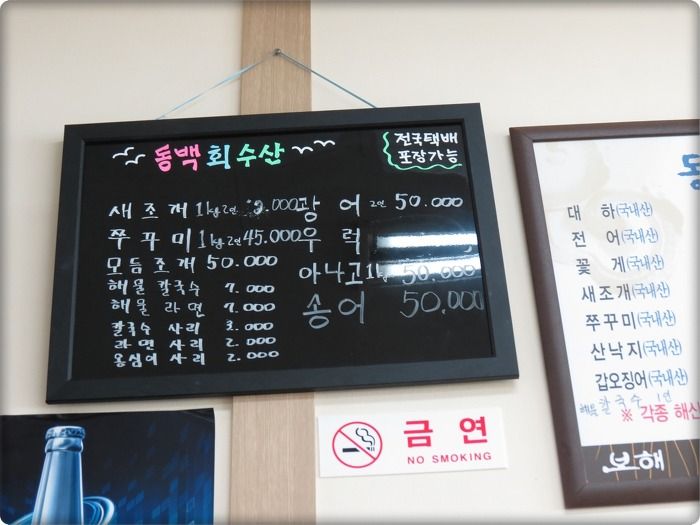 동백회수산
전국택배
포장가능
새조개 1kg 2인 000
쭈꾸미 1kg 2인 45.000
모듬조개 50.000
해물 칼국수 7.000
해물 라면 7.000
칼국수 사리 3.000
라면 사리 2.000
옹심이 사리 2.000
광어 2인 50.000
우럭
아나고 1kg 50.000
송어 50.000
금연
NO SMOKING
동
대 하(국내산)
전 어(국내산)
꽃 게(국내산)
새조개(국내산)
쭈꾸미(국내산)
산낙지(국내산)
갑오징어(국내산)
해물 칼국수 1인
※ 각종 해산
보해